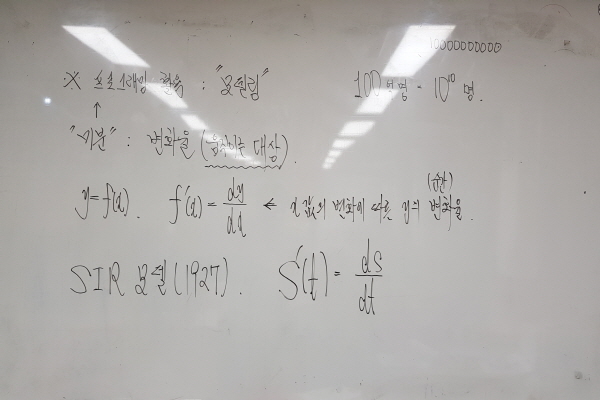 10000000000
※ 프로그래밍 활용 : "모델링" 100억명 = 10¹⁰ 명.
↑
"미분" : 변화율 (움직이는 대상).
(순간)
y=f(x). f'(x) = dy/dx ← x값의 변화에 따른 y의 변화율.
SIR 모델(1927). S'(t) = dS/dt